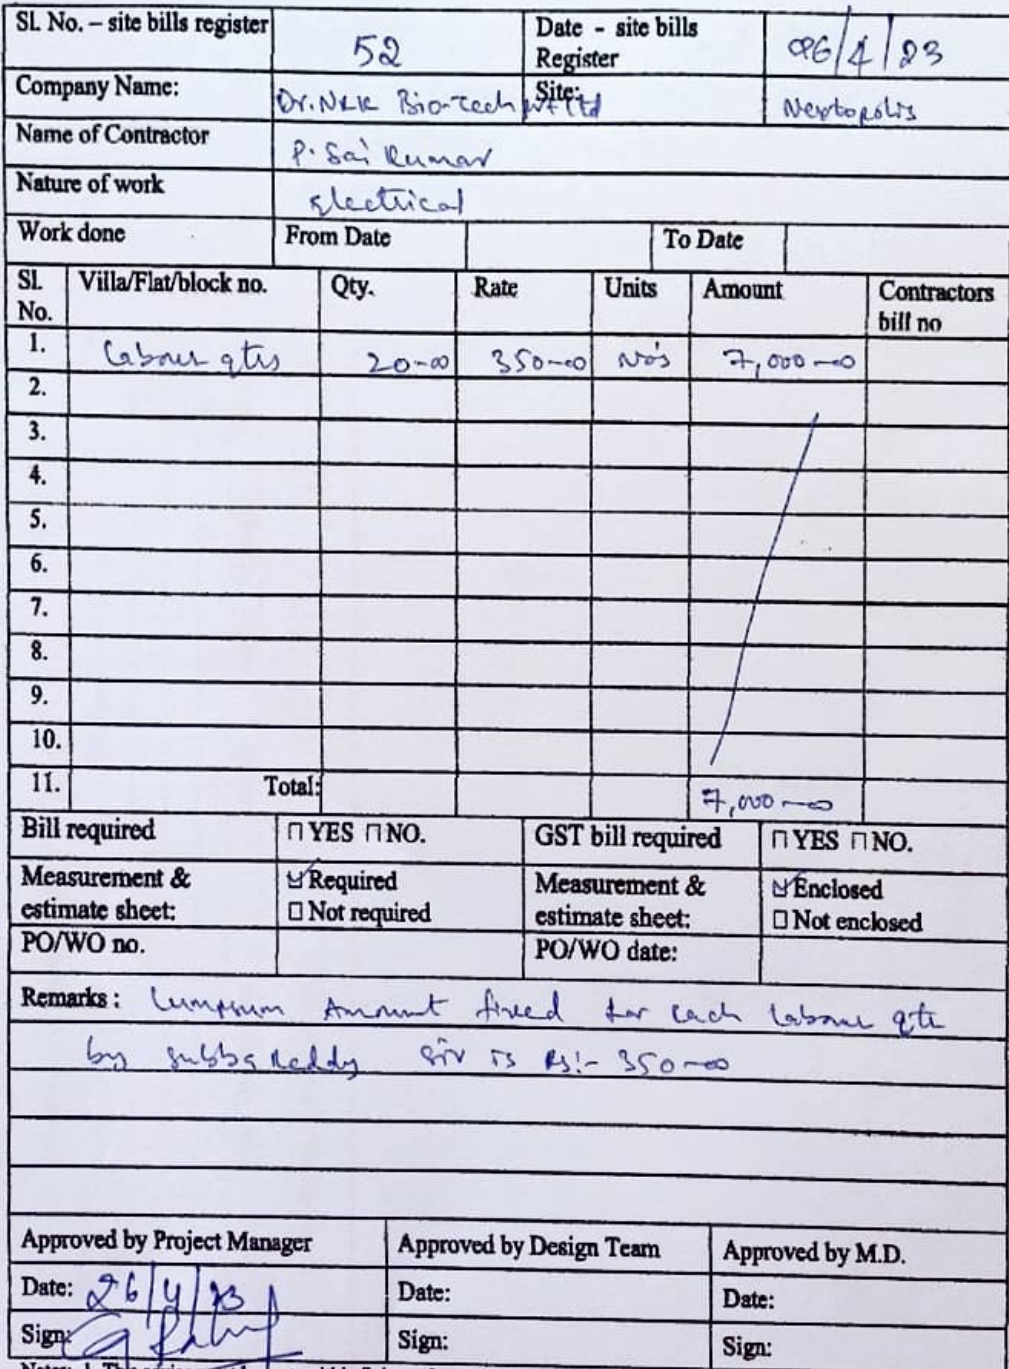 SL No. – site bills register 52 Date - site bills Register 26/4/23
Company Name: Dr. NRK Bio-Tech Pvt Ltd Site: Nextopolis
Name of Contractor P. Sai Kumar
Nature of work Electrical
Work done From Date To Date
Sl. No. Villa/Flat/block no. Qty. Rate Units Amount Contractors bill no
1. Labour qtrs 20-00 350-00 No's 7,000-00
2.
3.
4.
5.
6.
7.
8.
9.
10.
11. Total: 7,000-00
Bill required YES NO. GST bill required YES NO.
Measurement & estimate sheet: Required Not required Measurement & estimate sheet: Enclosed Not enclosed
PO/WO no. PO/WO date:
Remarks: Lumpsum Amount fixed for each labour qtr
by Subba Reddy Sir is Rs:- 350-00
Approved by Project Manager Approved by Design Team Approved by M.D.
Date: 26/4/23 Date: Date:
Sign: Sign: Sign: